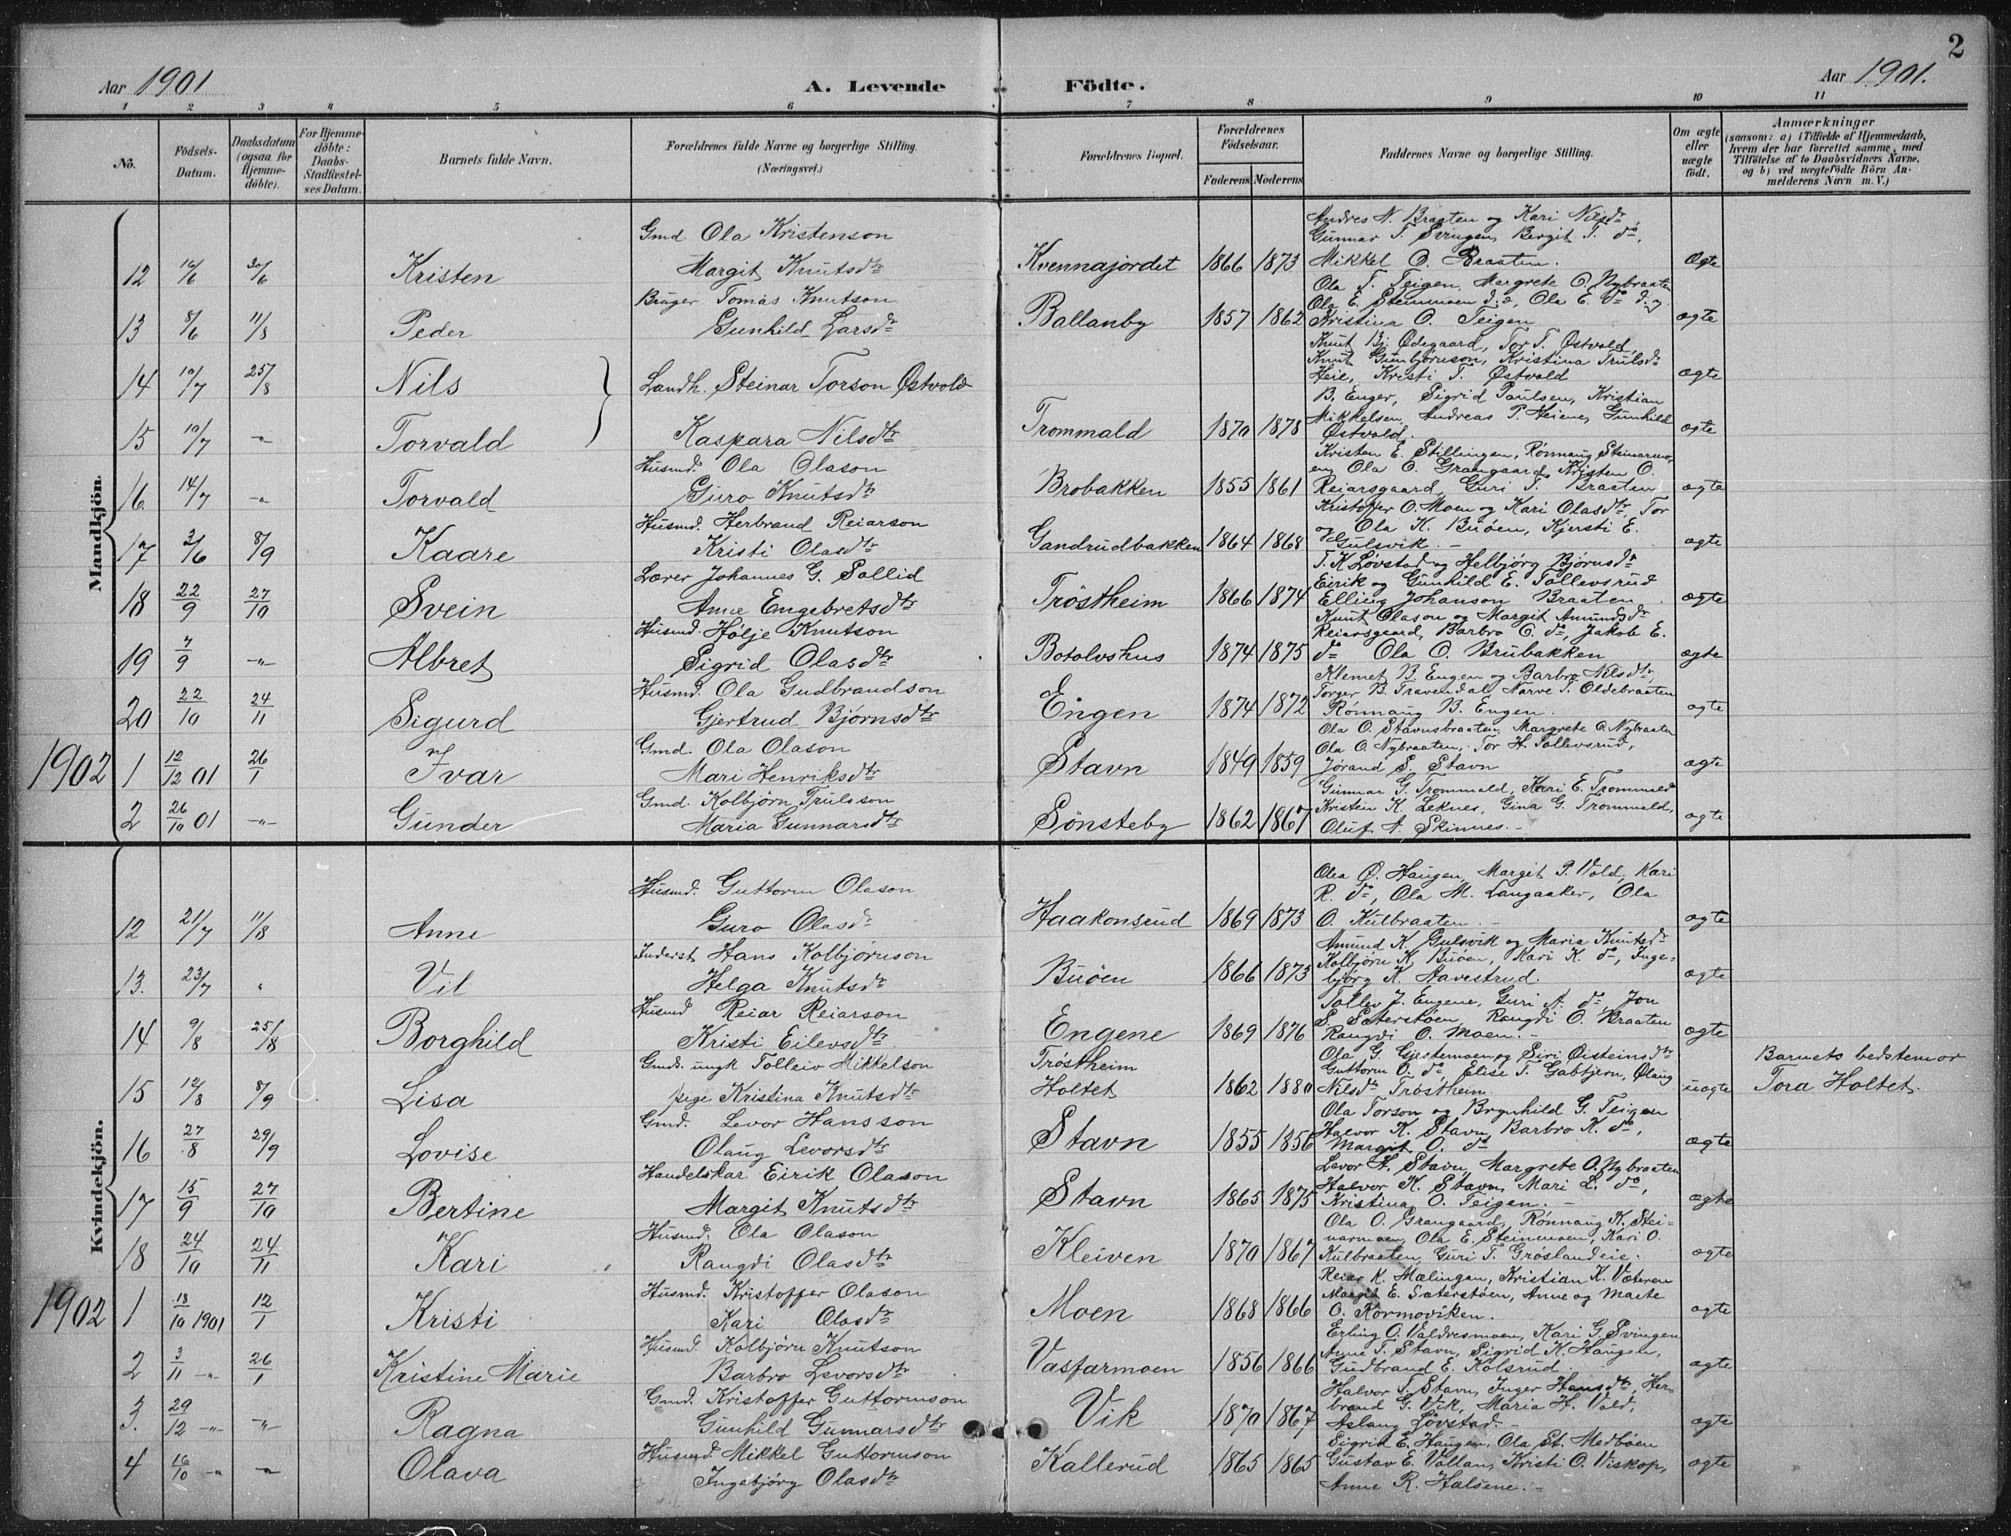 2
Aar 1901
A. Levende
Födte.
Aar 1901.
1 2 3 4 5 6 7 8 9 10 11
No.
Födsels-Datum.
Daabsdatum (ogsaa for Hjemmedöbte).
For Hjemmedöbte: Daabs-Stadfæstelses Datum.
Barnets fulde Navn.
Forældrenes fulde Navne og borgerlige Stilling.
(Næringsvei.)
Forældrenes Bopæl.
Forældrenes Födselsaar.
Faderens Moderens
Faddernes Navne og borgerlige Stilling.
Om ægte eller uægte födt.
Anmærkninger
(saasom: a) i Tilfælde af Hjemmedaab, hvem der har forrettet samme, med Tilföielse af to Daabsvidners Navne, og b) ved uægtefödte Börn Anmelderens Navn m. V.)
Mandkjön.
Andres N. Braaten og Kari Nilsdr,
Gmd. Ola Kristenson
Gunnar T. Svingen, Bergit T. do,
12 16/6 30/6 Kristen Margit Knutsdtr Kvennajordet 1866 1873 Mikkel O. Braaten. Ægte
Ola T. Teigen, Margrete O. Nybraaten
Bruger Tomas Knutson
Ola E. Stemmoen d.e, Ola E. do d.y.
13 8/6 11/8 Peder Gunhild Larsdr Ballanby 1857 1862 Kristina O. Teigen ægte
Knut Bj. Ødegaard, Tor T. Østvold,
Knut Gunbjørnson, Kristina Trulsdr
14 10/7 25/8 Nils Landh. Steinar Torson Østvold Heie, Kristi T. Østvold ægte
B. Enger, Sigrid Paulsen, Kristian
Mikkelsen, Andreas P. Heiene, Gunhild
15 10/7 -"- Torvald Kaspara Nilsdtr Trommald 1870 1878 Østvold. ægte
Kristen E. Stillingen, Rønnaug Steinarmo-
Husmd. Ola Olason
en, Ola O. Grangaard, Kristen O.
16 14/7 -"- Torvald Guro Knutsdtr Brobakken 1855 1861 Reiarsgaard, Guri T. Braaten ægte
Kristoffer O. Moen og Kari Olasdtr, Tor
Husmd. Herbrand Reiarson
og Ola K. Buøen, Kjersti E.
17 3/6 8/9 Kaare Kristi Olasdtr Gandrudbakken 1864 1868 Gulsvik. - ægte
T. K. Løvstad og Helbjørg Bjørnsdr
Lærer Johannes G. Sollid
Eirik og Gunhild E. Tollevsrud
18 22/9 27/10 Svein Anne Engebretsdtr Trøstheim 1866 1874 Elling Johanson Braaten ægte
Knut Olason og Margit Amundsdr
Husmd. Hølje Knutson
Reiarsgaard, Barbro O. do, Jakob E.
19 7/9 -"- Albret Sigrid Olasdtr Botolvshus 1874 1875 do Ola O. Brubakken ægte
Klemet B. Engen og Barbro Nilsdtr,
Husmd. Ola Gudbrandson
Torger B. Travendal, Narve T. Oldebraaten
20 22/10 24/11 Sigurd Gjertrud Bjørnsdtr Engen 1874 1872 Rønnaug B. Engen. ægte
Ola O. Stavnsbraaten, Margrete O. Nybraaten
Gmd. Ola Olason
Ola O. Nybraaten, Tor H. Tollevsrud,
1902 1 12/12 01 26/1 Ivar Mari Henriksdtr Stavn 1849 1859 Jørand S. Stavn ægte
Gunnar G. Trommald, Kari E. Trommald
Gmd. Kolbjørn Trulsson
Kristen K. Leknes, Gina G. Trommald,
2 26/10 01 -"- Gunder Maria Gunnarsdtr Sønsteby 1862 1867 Oluf A. Skinnes. - ægte
Kvindekjön.
Olea Ø. Haugen, Margit P. Vold, Kari
Husmd. Guttorm Olason
R. do, Ola M. Langaaker, Ola
12 21/7 11/8 Anne Guro Olasdr Haakonsrud 1869 1873 O. Kulbraaten. - ægte
Amund K. Gulsvik og Maria Knutsdr
Inderst Hans Kolbjørnson
Kolbjørn K. Buøen, Kari K. do, Inge-
13. 23/7 " Vil Helga Knutsdr Buöen 1866 1873 björg K. Havestrud. ægte
Tollev J. Engene, Guri A. do Jon
Husmd Reiar Reiarson
S. Sæterstøen, Rangdi O. Braaten
14 9/8 25/8 Borghild Kristi Eilevsdtr Engene 1869 1876 Rangdi O. Moen. - ægte
Ola G. Gjestemoen og Siri Øisteinsdtr
Gmds. ungk Tolleiv Mikkelson Trøstheim
Guttorm O. do, Elise T. Gabtjern, Ølaug
Barnets bedstemor
15 12/8 8/9 Lisa pige Kristina Knutsdtr Holtet 1862 1880 Nilsdr Trøstheim uægte Tora Holtet.
Ola Torson og Brynhild G. Teigen
Gmd. Levor Hansson
Halvor K. Stavn, Barbro K. do,
16 27/8 29/9 Lovise Olaug Levorsdtr Stavn 1855 1856 Margit O. do ægte
Levor H. Stavn, Margrete O. Nybraaten
Handelskar Eirik Olason
Halvor K. Stavn, Mari L. do,
17 15/9 27/10 Bertine Margit Knutsdtr Stavn 1865 1875 Kristina O. Teigen. - ægte
Ola O. Grangaard, Rønnaug K. Stei-
Husmd. Ola Olason
narmoen, Ola E. Steinmoen, Kari O.
18 24/10 24/11 Kari Rangdi Olasdtr Kleiven 1870 1867 Kulbraaten, Guri T. Grøslandeie. ægte
Reiar K. Mælingen, Kristian K. Væteren
Husmd. Kristoffer Olason
Margit E. Sæterstøen, Anne og Marte
1902 1 18/10 1901 12/1 Kristi Kari Olasdtr Moen 1868 1866 O. Kormoviken. ægte
Erling O. Valdresmoen, Kari G. Svingen
Husmd. Kolbjørn Knutson
Anne T. Stavn, Sigrid K. Haugen,
2 3/11 -"- 26/1 Kristine Marie Barbro Levorsdtr Vasfarmoen 1856 1866 Gudbrand E. Kolsrud. ægte
Halvor T. Stavn, Inger Hansdtr, Her-
Gmd. Kristoffer Guttormson
brand G. Vik, Maria H. Vold,
3. 29/12 -"- -"- Ragna Gunhild Gunnarsdtr Vik 1870 1867 Aslaug Løvstad. - ægte
Sigrid E. Haugen, Ola St. Medbøen
Husmd. Mikkel Guttormson
4 16/10 -"- -"- Olava Ingebjörg Olasdtr Kallerud 1865 1865 Gustav E. Vollan, Kristi O. Viskop, ægte
Anne R. Halsene. -